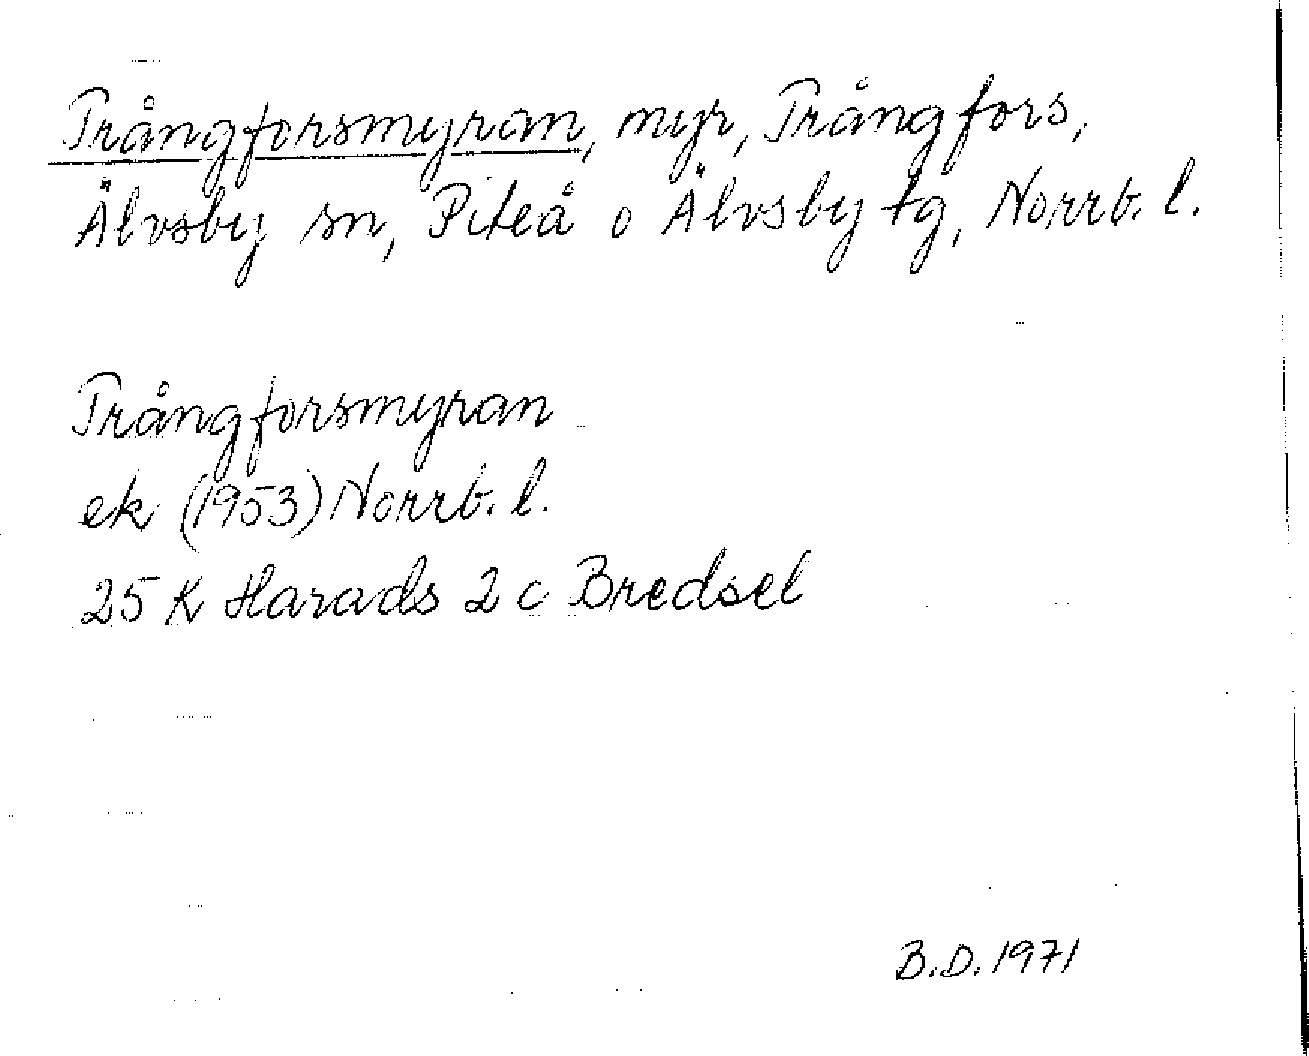 Trångforsmyran, myr, Trångfors,
Älvsby sn, Piteå o Älvsby tg, Norrb. l.
Trångforsmyran
ek (1953) Norrb. l.
25 K Harads 2 c Bredsel
B.D. 1971